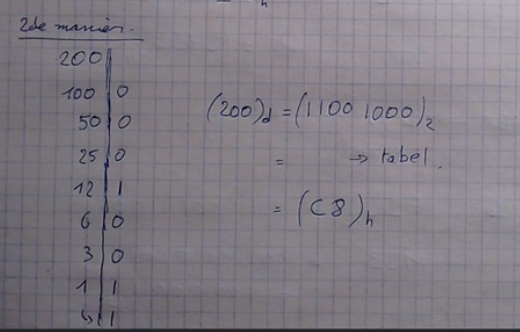 2de manier.
200
100 0
50 0
25 0
12 1
6 0
3 0
1 1
↳ 1
(200)d = (1100 1000)2
= → tabel.
= (C8)h